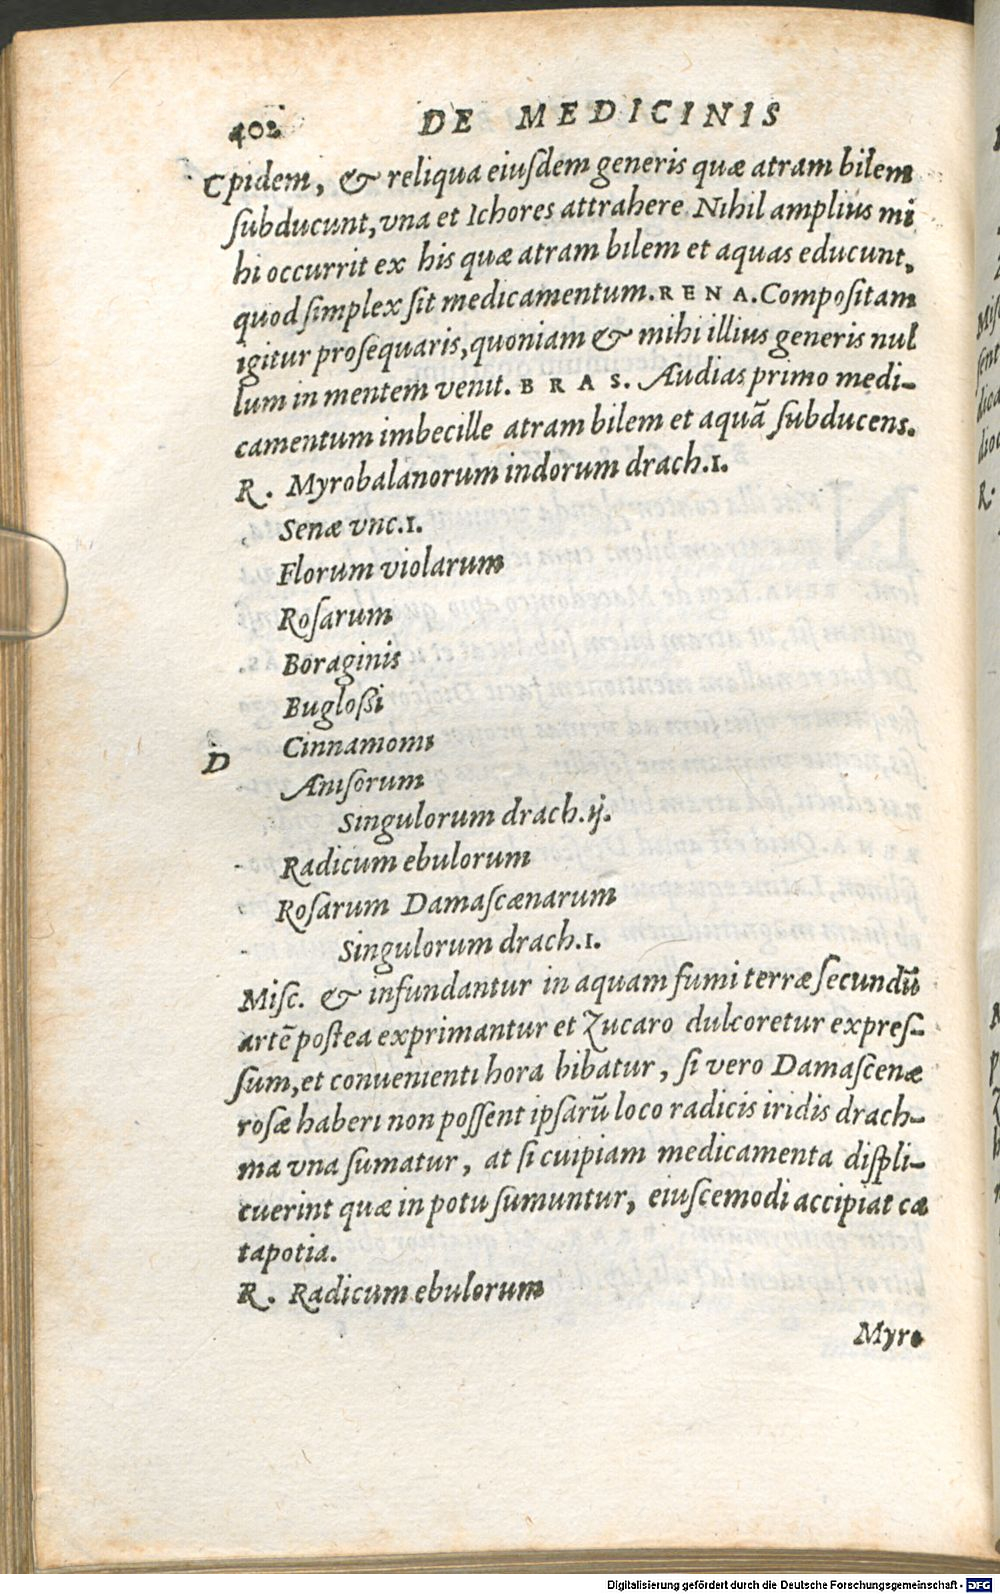 402 DE MEDICINIS
C pidem, & reliqua eiuſdem generis quæ atram bilem
ſubducunt, vna et Ichores attrahere. Nihil amplius mi
hi occurrit ex his quæ atram bilem et aquas educunt,
quod ſimplex ſit medicamentum. RENA. Compoſitam
igitur proſequaris, quoniam & mihi illius generis nul
lum in mentem venit. BRAS. Audias primo medi-
camentum imbecille atram bilem et aquã ſubducens.
R. Myrobalanorum indorum drach.1.
Senæ vnc.1.
Florum violarum
Roſarum
Boraginis
Bugloſsi
D Cinnamomi
Aniſorum
Singulorum drach.ij.
Radicum ebulorum
Roſarum Damaſcænarum
Singulorum drach.1.
Miſc. & infundantur in aquam fumi terræ ſecundũ
artẽ poſtea exprimantur et Zucaro dulcoretur expreſ-
ſum, et conuenienti hora bibatur, ſi vero Damaſcenæ
roſæ haberi non poſſent ipſarũ loco radicis iridis drach-
ma vna ſumatur, at ſi cuipiam medicamenta diſpli-
cuerint quæ in potu ſumuntur, eiuſcemodi accipiat ca
tapotia.
R. Radicum ebulorum
Myro
Digitalisierung gefördert durch die Deutsche Forschungsgemeinschaft - DFG